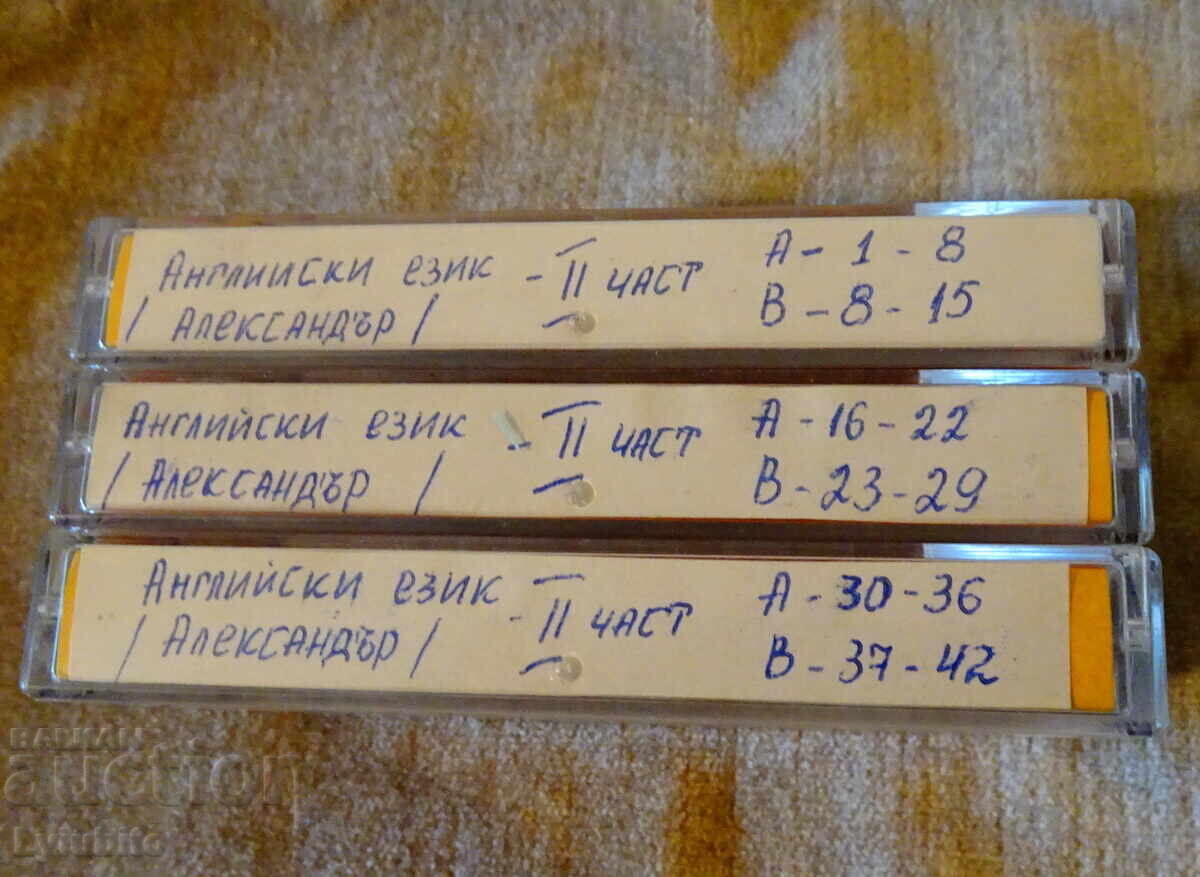 Английски език - II част
/ Александър /
A - 1 - 8
B - 8 - 15
Английски език - II част
/ Александър /
A - 16 - 22
B - 23 - 29
Английски език - II част
/ Александър /
A - 30 - 36
B - 37 - 42
BALKAN
аукцион
Lyturbito